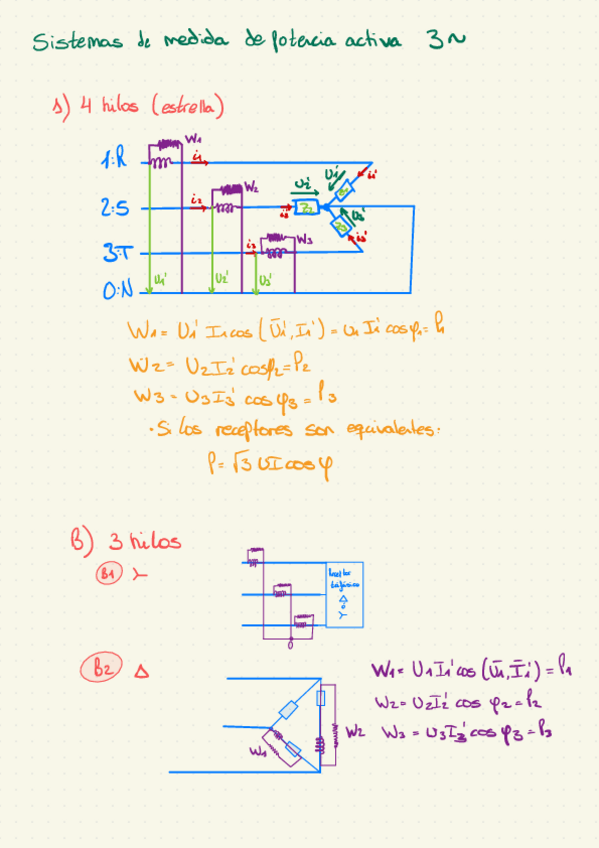 Sistemas de medida de potencia activa 3~
A) 4 hilos (estrella)
W1
1:R i1 i1'
W2 U2' U1' Z1
2:S i2 i2' Z2 U3'
W3 Z3
3:T i3 i3'
U1' U2' U3'
0:N
W1= U1' I1 cos (Ū1', I1') = U1 I1' cos φ1= P1
W2= U2 I2' cos φ2= P2
W3= U3 I3' cos φ3 = P3
· Si los receptores son equivalentes:
P= √3 UI cos φ
B) 3 hilos
B1 Y
Receptor
trifásico
Δ
o
Y
0
B2 Δ
W1= U1 I1' cos (Ū1, Ī1') = P1
W2= U2 I2' cos φ2 = P2
W1 W2 W3= U3 I3' cos φ3 = P3